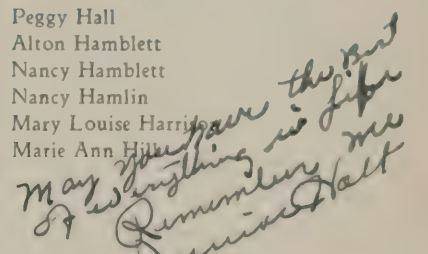 Peggy Hall
Alton Hamblett
Nancy Hamblett
Nancy Hamlin
Mary Louise
Marie Ann
May you have the Best
of everything in life
Remember me
Holt